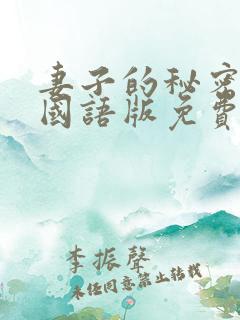 妻子的秘密
國語版免費
李振聲
未任同意禁止转载